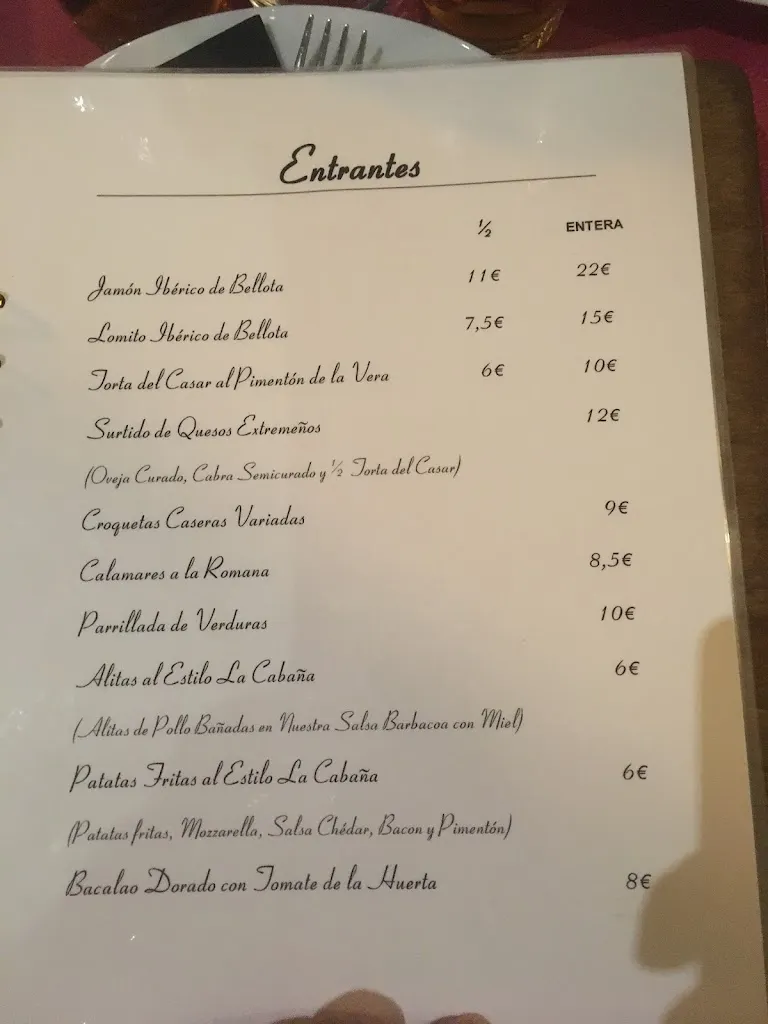 Entrantes
½ ENTERA
Jamón Ibérico de Bellota 11€ 22€
Lomito Ibérico de Bellota 7,5€ 15€
Torta del Casar al Pimentón de la Vera 6€ 10€
Surtido de Quesos Extremeños 12€
(Oveja Curado, Cabra Semicurado y ½ Torta del Casar)
Croquetas Caseras Variadas 9€
Calamares a la Romana 8,5€
Parrillada de Verduras 10€
Alitas al Estilo La Cabaña 6€
(Alitas de Pollo Bañadas en Nuestra Salsa Barbacoa con Miel)
Patatas Fritas al Estilo La Cabaña 6€
(Patatas fritas, Mozzarella, Salsa Chédar, Bacon y Pimentón)
Bacalao Dorado con Tomate de la Huerta 8€